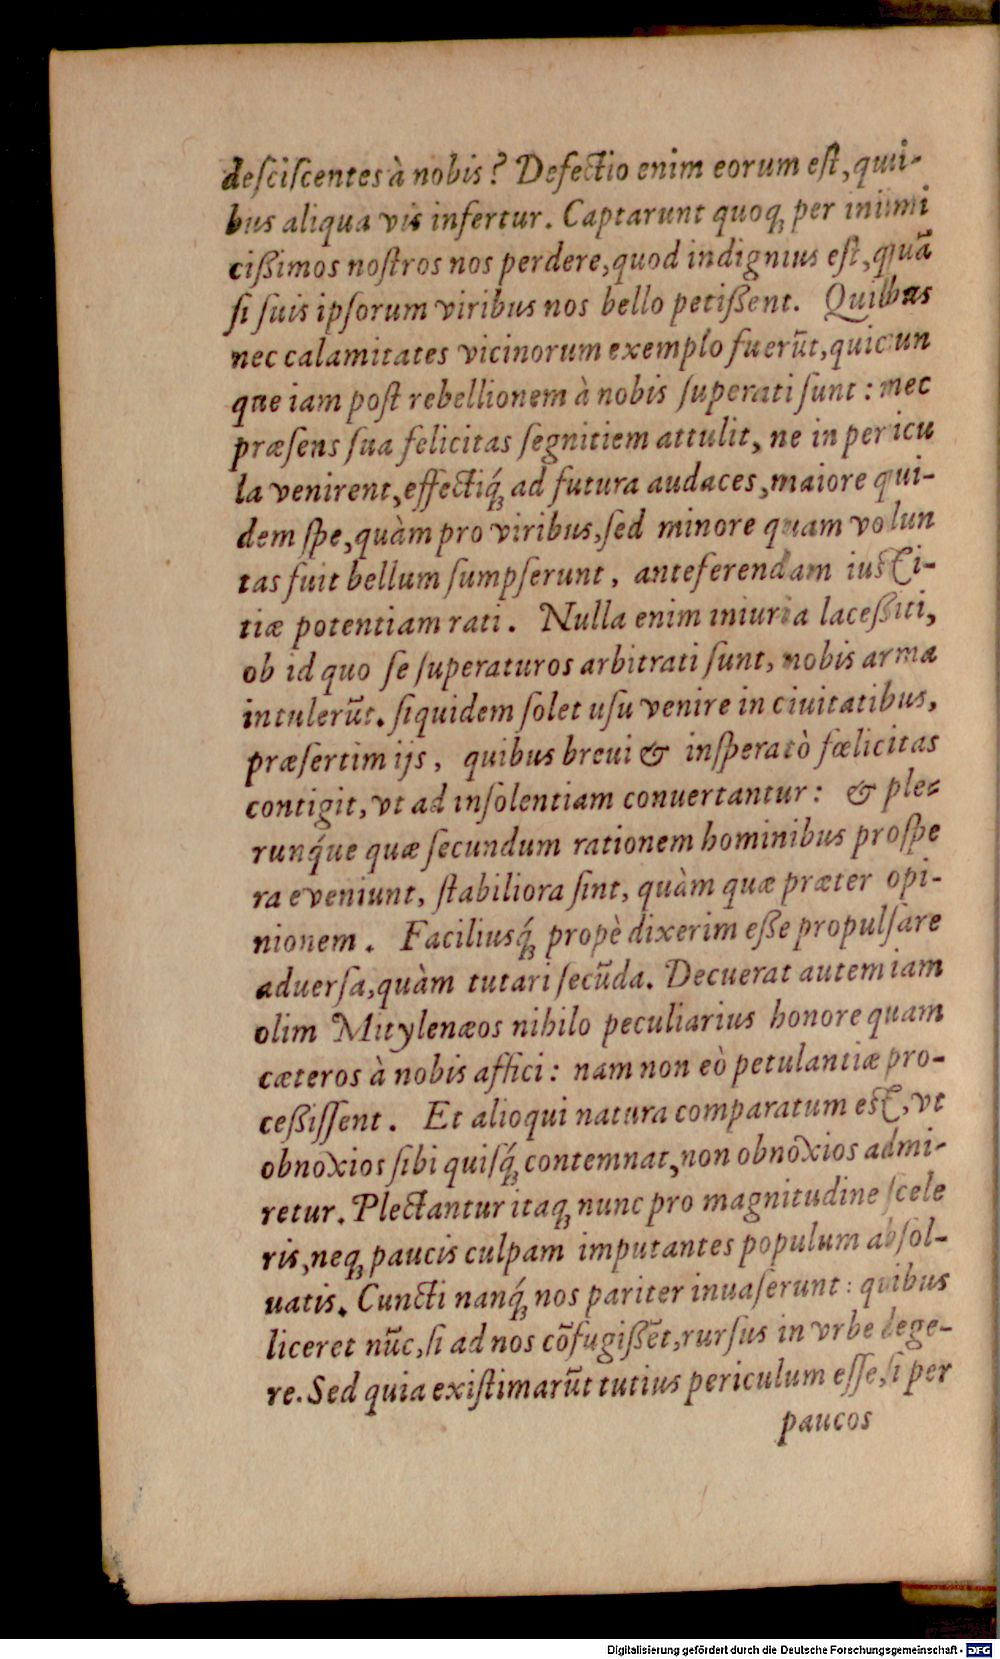 desciscentes à nobis? Defectio enim eorum est, qui-
bus aliqua vis infertur. Captarunt quoq; per inimi
cißimos nostros nos perdere, quod indignius est, quã
si suis ipsorum viribus nos bello petißent. Quibus
nec calamitates vicinorum exemplo fuerũt, quicun
que iam post rebellionem à nobis superati sunt: nec
præsens sua felicitas segnitiem attulit, ne in pericu
la venirent, effectiq́; ad futura audaces, maiore qui-
dem spe, quàm pro viribus, sed minore quam volun
tas fuit bellum sumpserunt, anteferendam iusti-
tiæ potentiam rati. Nulla enim iniuria laceßiti,
ob id quo se superaturos arbitrati sunt, nobis arma
intulerũt. siquidem solet usu venire in ciuitatibus,
præsertim ijs, quibus breui & insperatò fœlicitas
contigit, vt ad insolentiam conuertantur: & ple-
runq́ue quæ secundum rationem hominibus prospe
ra eveniunt, stabiliora sint, quàm quæ præter opi-
nionem. Faciliusq́; propè dixerim eße propulsare
aduersa, quàm tutari secũda. Decuerat autem iam
olim Mitylenæos nihilo peculiarius honore quam
cæteros à nobis affici: nam non eò petulantiæ pro-
ceßissent. Et alioqui natura comparatum est, vt
obnoxios sibi quisq́; contemnat, non obnoxios admi-
retur. Plectantur itaq; nunc pro magnitudine scele
ris, neq; paucis culpam imputantes populum absol-
uatis. Cuncti nanq́; nos pariter inuaserunt: quibus
liceret nũc, si ad nos cõfugißẽt, rursus in vrbe dege-
re. Sed quia existimarũt tutius periculum esse, si per
paucos
Digitalisierung gefördert durch die Deutsche Forschungsgemeinschaft - DFG